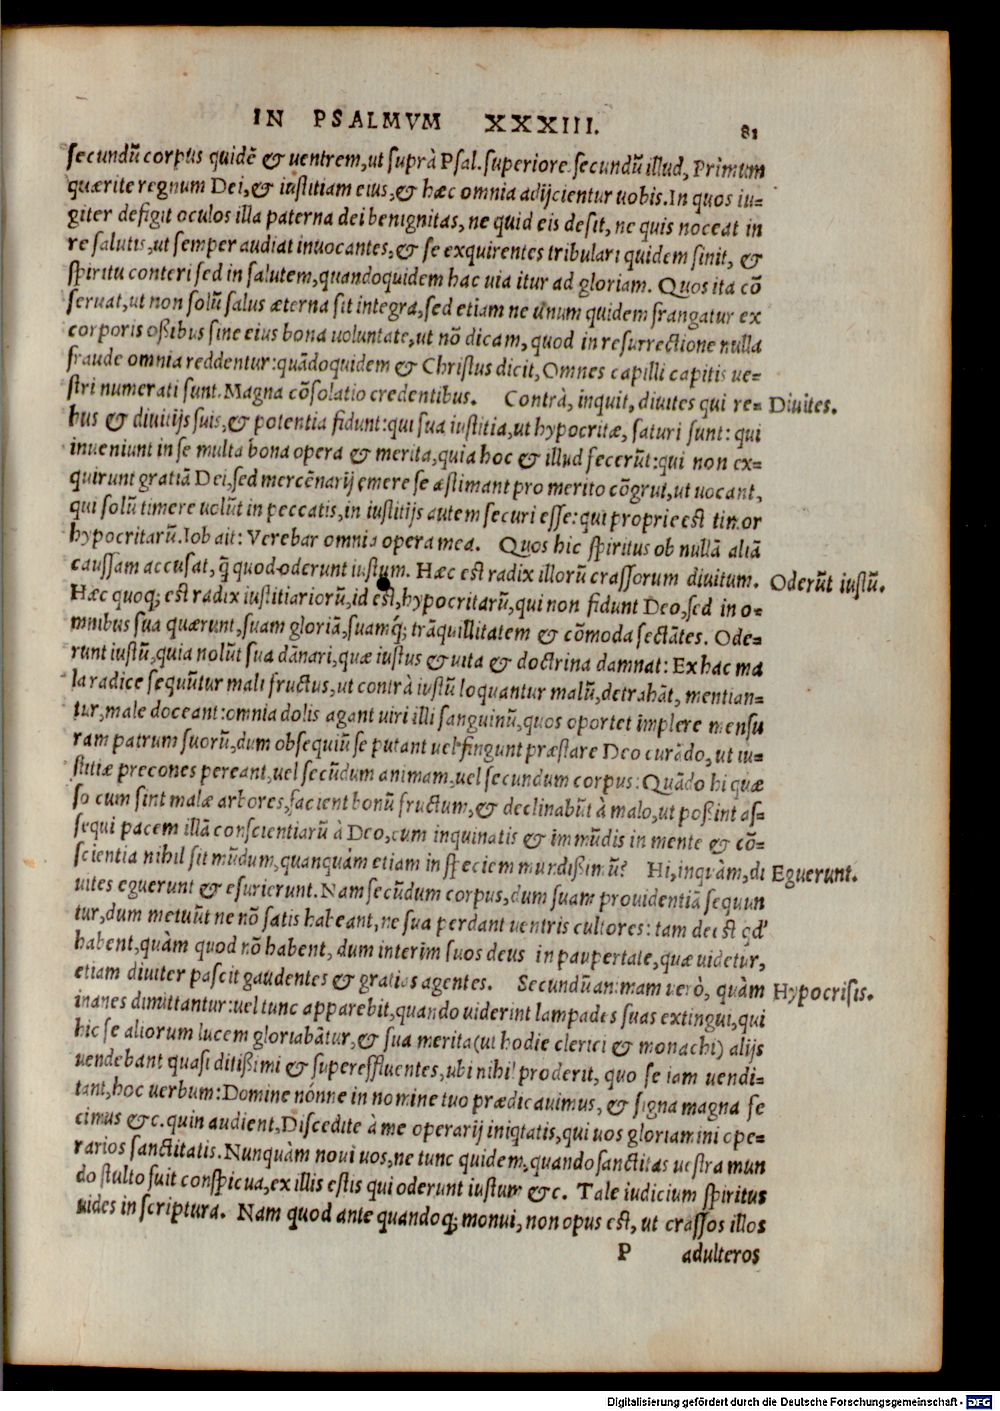 IN PSALMVM XXXIII. 81
secundũ corpus quidẽ & uentrem, ut suprà Psal. superiore. secundũ illud, Primum
quærite regnum Dei, & iustitiam eius, & hæc omnia adijcientur uobis. In quos iu=
giter defigit oculos illa paterna dei benignitas, ne quid eis desit, ne quis noceat in
re salutis, ut semper audiat inuocantes, & se exquirentes tribulari quidem sinit, &
spiritu conteri sed in salutem, quandoquidem hac uia itur ad gloriam. Quos ita cõ
seruat, ut non solũ salus æterna sit integra, sed etiam ne unum quidem frangatur ex
corporis oßibus sine eius bona uoluntate, ut nõ dicam, quod in resurrectione nulla
fraude omnia reddentur: quãdoquidem & Christus dicit, Omnes capilli capitis ue=
stri numerati sunt. Magna cõsolatio credentibus. Contrà, inquit, diuites qui re= Diuites.
bus & diuitijs suis, & potentia fidunt: qui sua iustitia, ut hypocritæ, saturi sunt: qui
inueniunt in se multa bona opera & merita, quia hoc & illud fecerũt: qui non ex=
quirunt gratiã Dei, sed mercẽnarij emere se æstimant pro merito cõgrui, ut uocant,
qui solũ timere uolũt in peccatis, in iustitijs autem securi esse: qui proprie est timor
hypocritarũ. Iob ait: Verebar omnia opera mea. Quos hic spiritus ob nullã aliã
caussam accusat, q̃ quod oderunt iustum. Hæc est radix illorũ crassorum diuitum. Oderũt iustũ.
Hæc quoq; est radix iustitiariorũ, id est, hypocritarũ, qui non fidunt Deo, sed in o=
mnibus sua quærunt, suam gloriã, suamq́; trãquillitatem & cõmoda sectãtes. Ode=
runt iustũ, quia nolũt sua dãnari, quæ iustus & uita & doctrina damnat: Ex hac ma
la radice sequũtur mali fructus, ut contrà iustũ loquantur malũ, detrahãt, mentian=
tur, male doceant: omnia dolis agant uiri illi sanguinũ, quos oportet implere mensu
ram patrum suorũ, dum obsequiũ se putant uel fingunt præstare Deo curãdo, ut iu=
stitiæ precones pereant, uel secũdum animam, uel secundum corpus: Quãdo hi quæ
so cum sint malæ arbores, facient bonũ fructum, & declinabũt à malo, ut poßint as=
sequi pacem illã conscientiarũ à Deo, cum inquinatis & immũdis in mente & cõ=
scientia nihil sit mũdum, quanquàm etiam in speciem mundißimũ? Hi, inquàm, di Eguerunt.
uites eguerunt & esurierunt. Nam secũdum corpus, dum suam prouidentiã sequun
tur, dum metuũt ne nõ satis habeant, ne sua perdant uentris cultores: tam deest qd'
habent, quàm quod nõ habent, dum interim suos deus in paupertate, quæ uidetur,
etiam diuiter pascit gaudentes & gratias agentes. Secundũ animam uerò, quàm Hypocrisis.
inanes dimittantur: uel tunc apparebit, quando uiderint lampades suas extingui, qui
hic se aliorum lucem gloriabãtur, & sua merita (ut hodie clerici & monachi) alijs
uendebant quasi ditißimi & supereffluentes, ubi nihil proderit, quo se iam uendi=
tant, hoc uerbum: Domine nónne in nomine tuo prædicauimus, & signa magna fe
cimus &c. quin audient, Discedite à me operarij iniqtatis, qui uos gloriamini ope=
rarios sanctitatis. Nunquàm noui uos, ne tunc quidem, quando sanctitas uestra mun
do stulto fuit conspicua, ex illis estis qui oderunt iustum &c. Tale iudicium spiritus
uides in scriptura. Nam quod ante quandoq; monui, non opus est, ut crassos illos
P adulteros
Digitalisierung gefördert durch die Deutsche Forschungsgemeinschaft - DFG